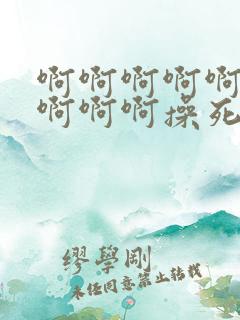 啊啊啊啊啊
啊啊啊操死
缪學剛
未经同意禁止转载